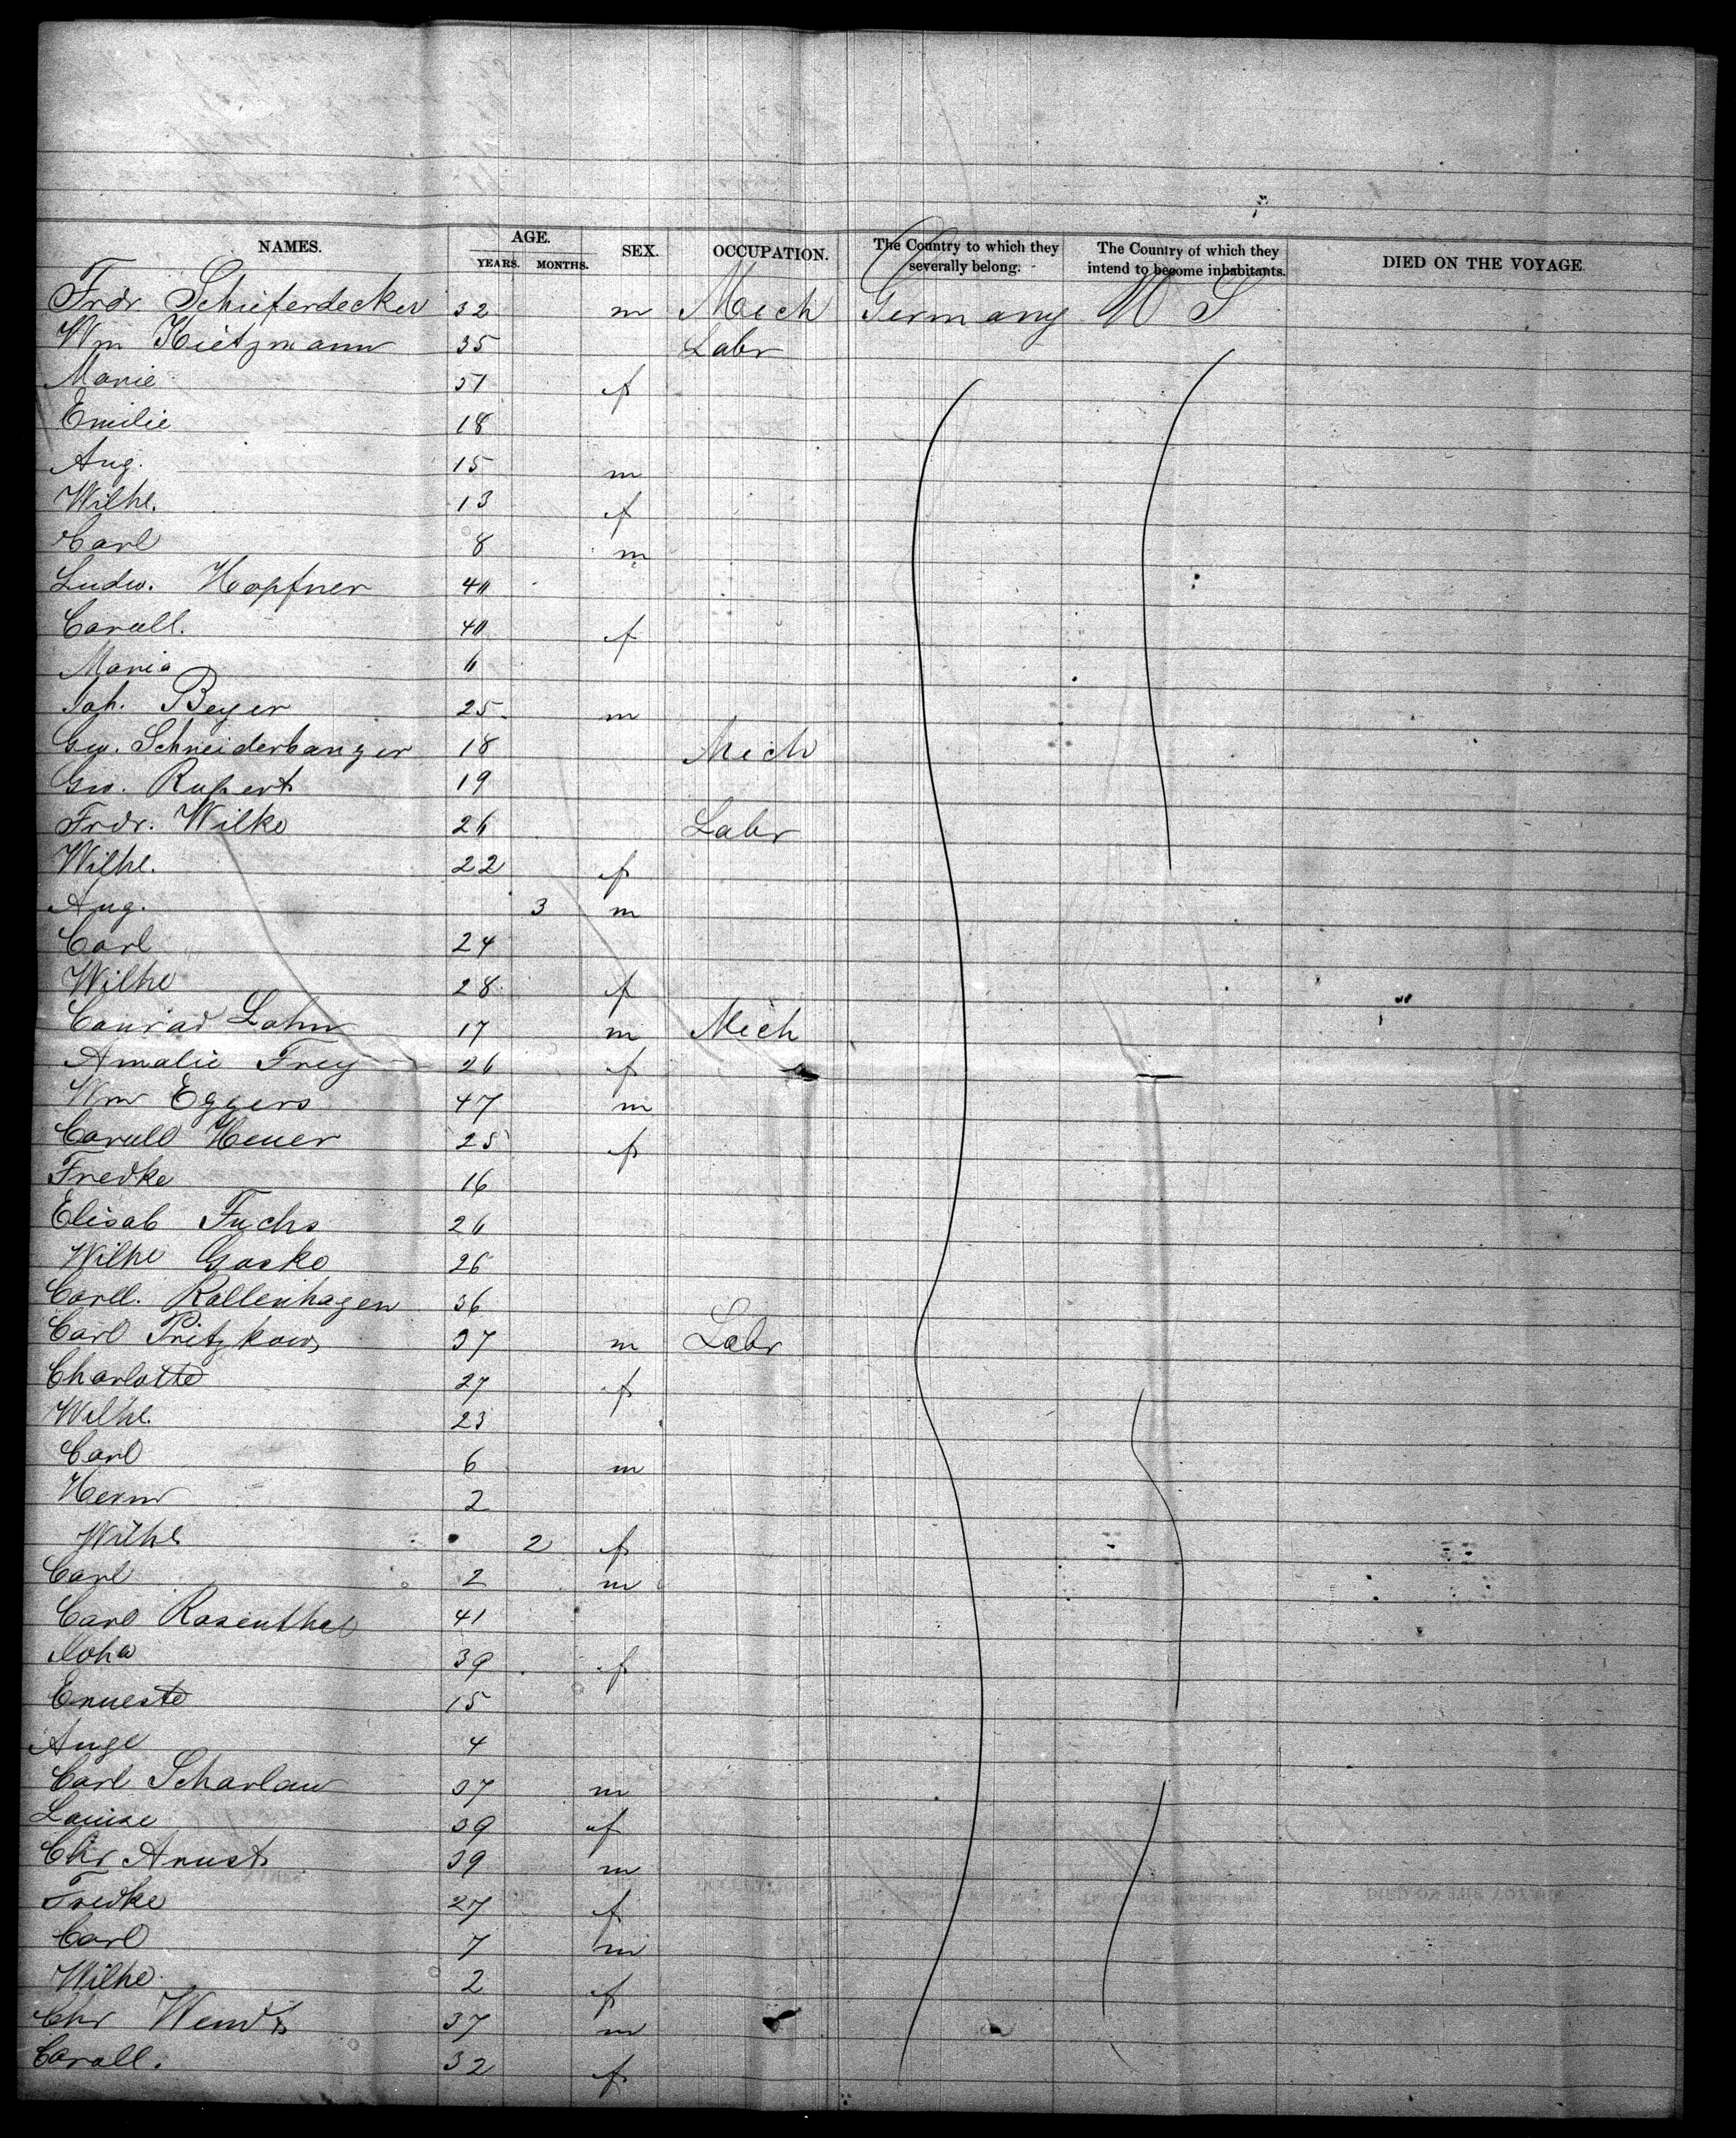 NAMES. AGE. YEARS. MONTHS. SEX. OCCUPATION. The Country to which they severally belong. The Country of which they intend to become inhabitants. DIED ON THE VOYAGE.
Frdr. Schieferdecker 32 m Mech Germany U S
Wm Kietzmann 35 Labr
Marie 51 f
Emilie 18
Aug. 15 m
Wilhe. 13 f
Carl 8 m
Ludw. Hopfner
Caroll. f
Maria
Joh. Beyer 25 m
Geo. Schneiderbanger 18 Mech
Geo. Rupert 19
Frdr. Wilke 26 Labr
Wilhe. 22 f
Aug. 3 m
Carl 24
Wilhe 28 f
Conrad Lohm 17 m Mech
Amalie Frey 26 f
Wm Eggers 47 m
Caroll Heuer 25 f
Fredke 16
Elisab Fuchs 26
Wilhe Gaske 26
Carll. Rollenhagen 36
Carl Pritzkow 37 m Labr
Charlotte 27 f
Wilhe. 23
Carl 6 m
Herm 2
Wilhe 2 f
Carl 2 m
Carl Rosenthal 41
Joha 39 f
Erneste 15
Auge 4
Carl Scharlau 37 m
Louise 39 f
Chr Arnst 39 m
Fredke 27 f
Carl 7 m
Wilhe. 2 f
Chr Wendt 37 m
Caroll. 32 f